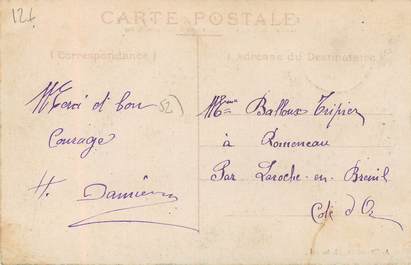 12f
CARTE POSTALE
(Correspondance)
Adresse du Destinataire
Merci et bon
courage
H. Damien
52
Mme Balloux Tripier
à Romeneau
Par Laroche-en-Breuil
Cote d'Or